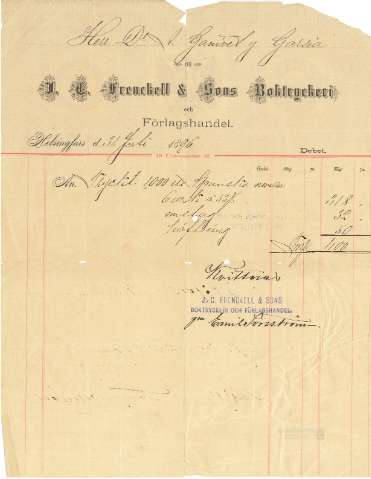 Herr Dr A. Ganivet y Garsia
till
J. C. Frenckell & Sons Boktryckeri
och
Förlagshandel.
Helsingfors d. Juli 1896
Debet.
An Tryckt 1000 ex. Spanska
6 ark à 53/. 318 -
omslag 32 -
häftning 50
Fmk 400
Kvitteras
J. C. FRENCKELL & SONS
BOKTRYCKERI OCH FÖRLAGSHANDEL.
gm Emil